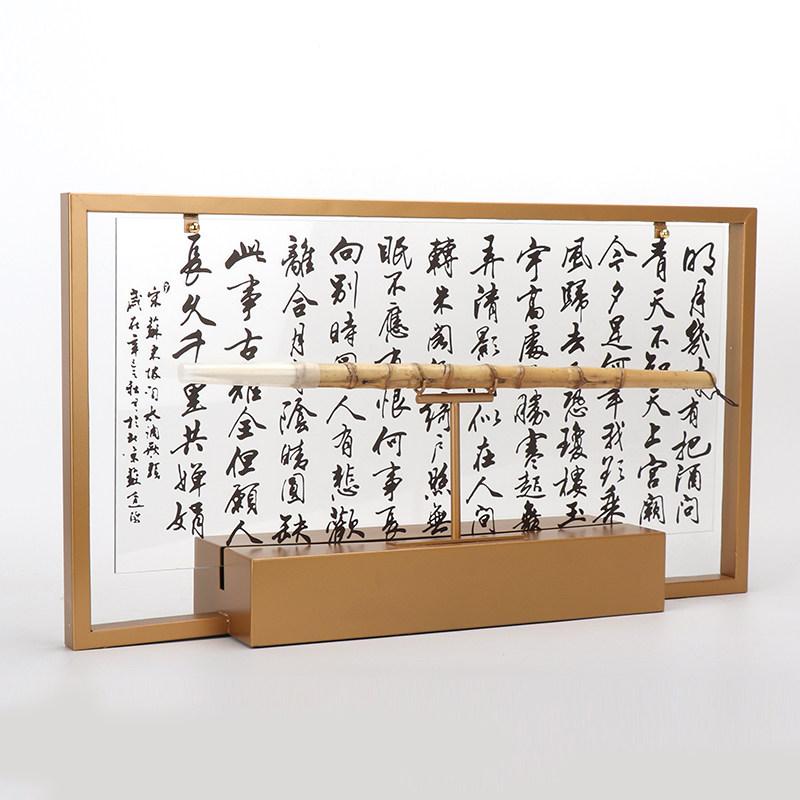 明月幾有把酒問
青天不知天上宮闕
今夕是何年我欲乘
風歸去恐瓊樓玉
宇高處勝寒起舞
弄清影似在人間
轉朱閣綺戶照無
眠不應有恨何事長
向別時圓人有悲歡
離合月有陰晴圓缺
此事古難全但願人
長久千里共嬋娟
宋蘇東坡詞水調歌頭
歲在辛巳秋書於北京